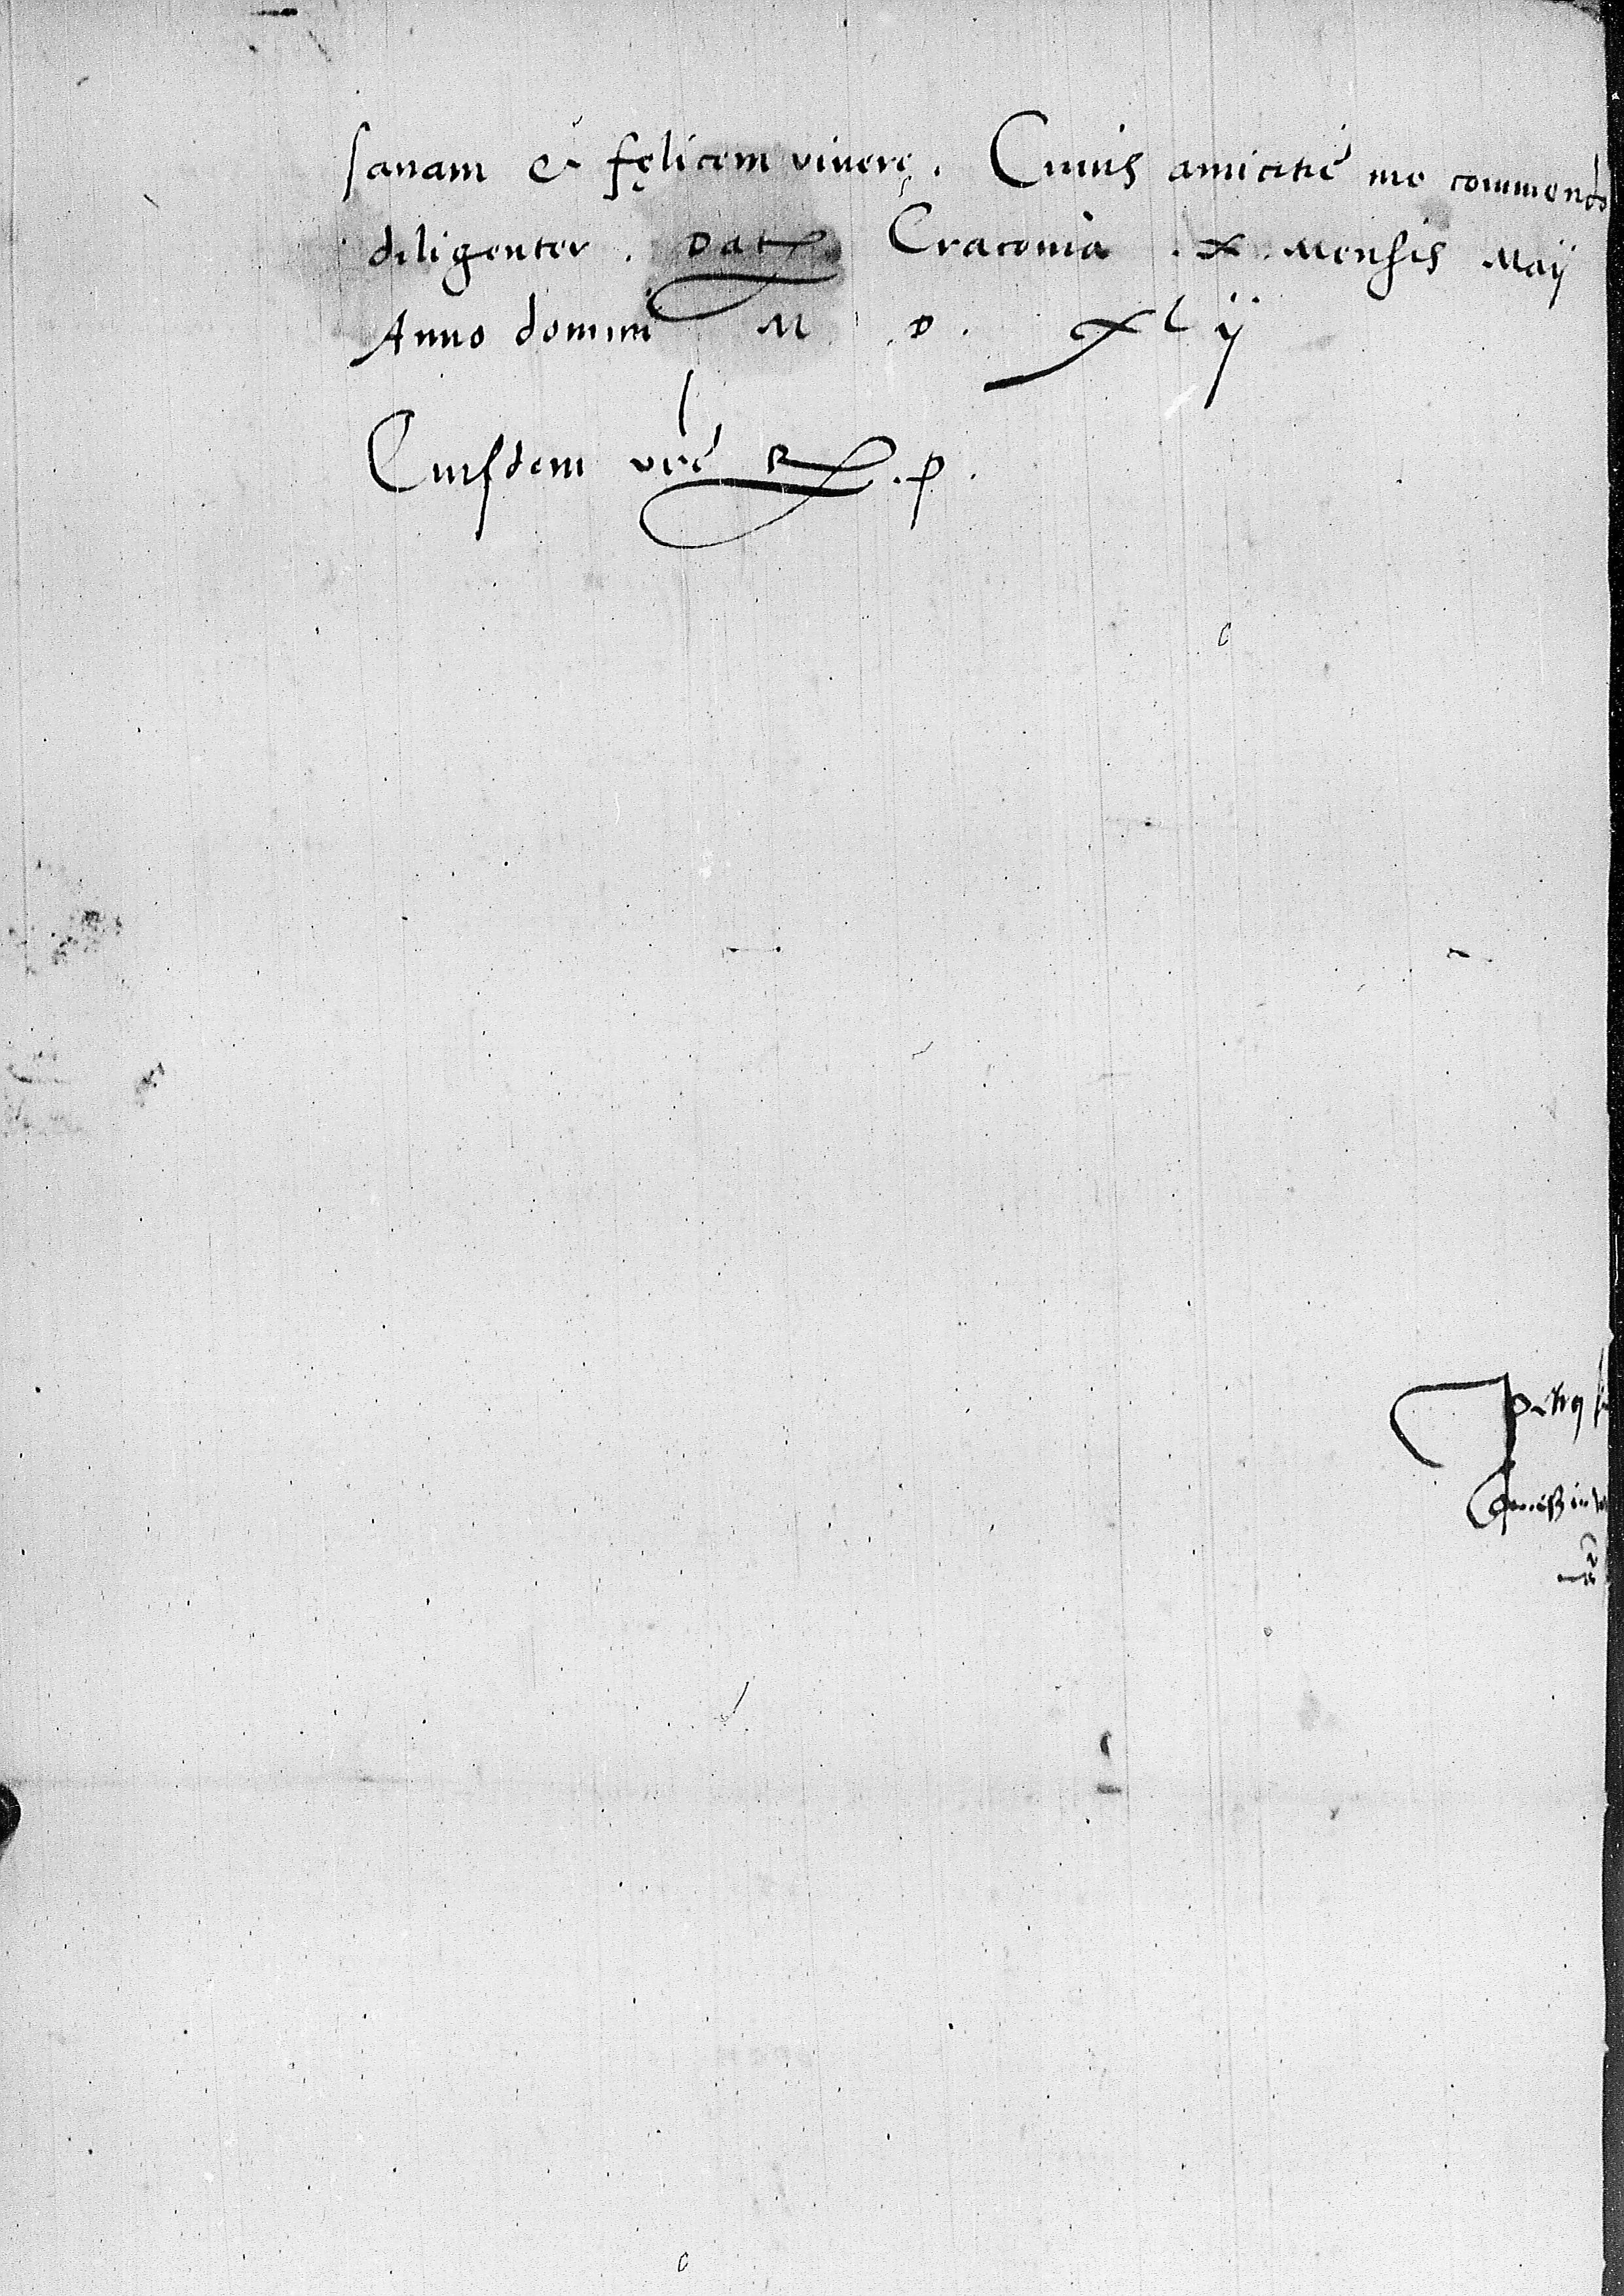 sanam & fęlicem vivere . Cuius amicitię me commendo
diligenter . Dat Cracovia . x . Mensis Maij
Anno domini M . D . xlij
Eiusdem vre R . P .
Petrus